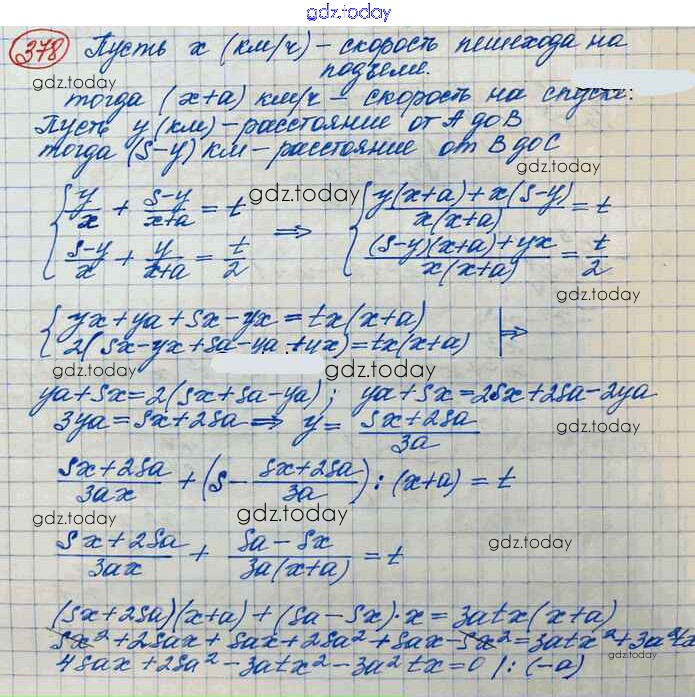 gdz.today
378 Пусть x (км/ч) – скорость пешехода на
подъеме.
gdz.today
тогда (x+a) км/ч – скорость на спуске:
Пусть y (км) – расстояние от A до B
тогда (S-y) км – расстояние от B до C
gdz.today
{ y/x + (S-y)/(x+a) = t => { (y(x+a)+x(S-y))/(x(x+a)) = t
{ (S-y)/x + y/(x+a) = t/2 { ((S-y)(x+a)+yx)/(x(x+a)) = t/2
gdz.today
{ yx+ya+Sx-yx=tx(x+a)
{ 2(Sx-yx+Sa-ya+yx)=tx(x+a) =>
gdz.today
ya+Sx=2(Sx+Sa-ya); ya+Sx=2Sx+2Sa-2ya
3ya=Sx+2Sa => y= (Sx+2Sa)/3a
gdz.today gdz.today
(Sx+2Sa)/3ax + (S - (Sx+2Sa)/3a) : (x+a) = t
gdz.today gdz.today
(Sx+2Sa)/3ax + (Sa-Sx)/(3a(x+a)) = t
gdz.today
(Sx+2Sa)(x+a)+(Sa-Sx)·x=3atx(x+a)
Sx²+2Sax+Sax+2Sa²+Sax-Sx²=3atx²+3a²tx
gdz.today gdz.today
4Sax+2Sa²-3atx²-3a²tx=0 /:(-a)